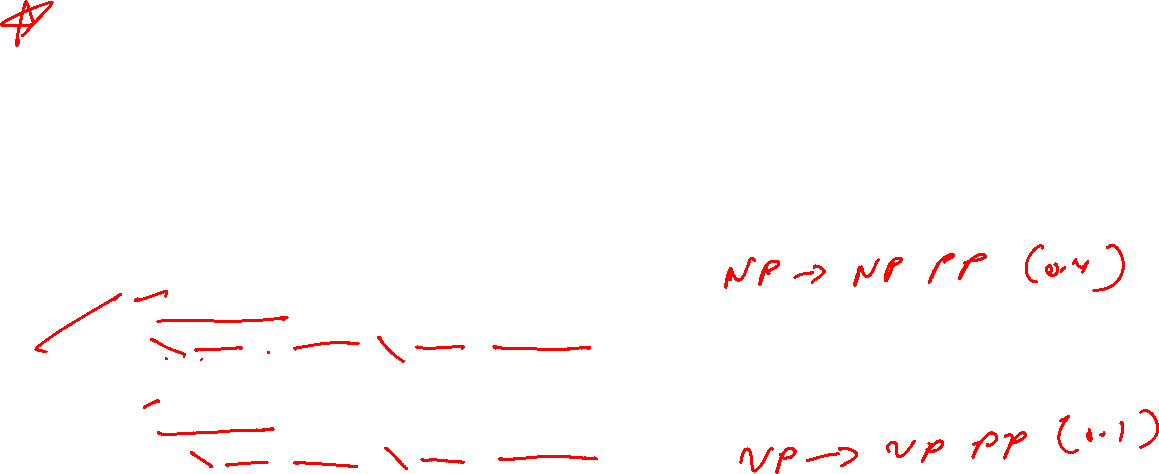 NP → NP PP (0.4)
NP → NP PP (0.1)